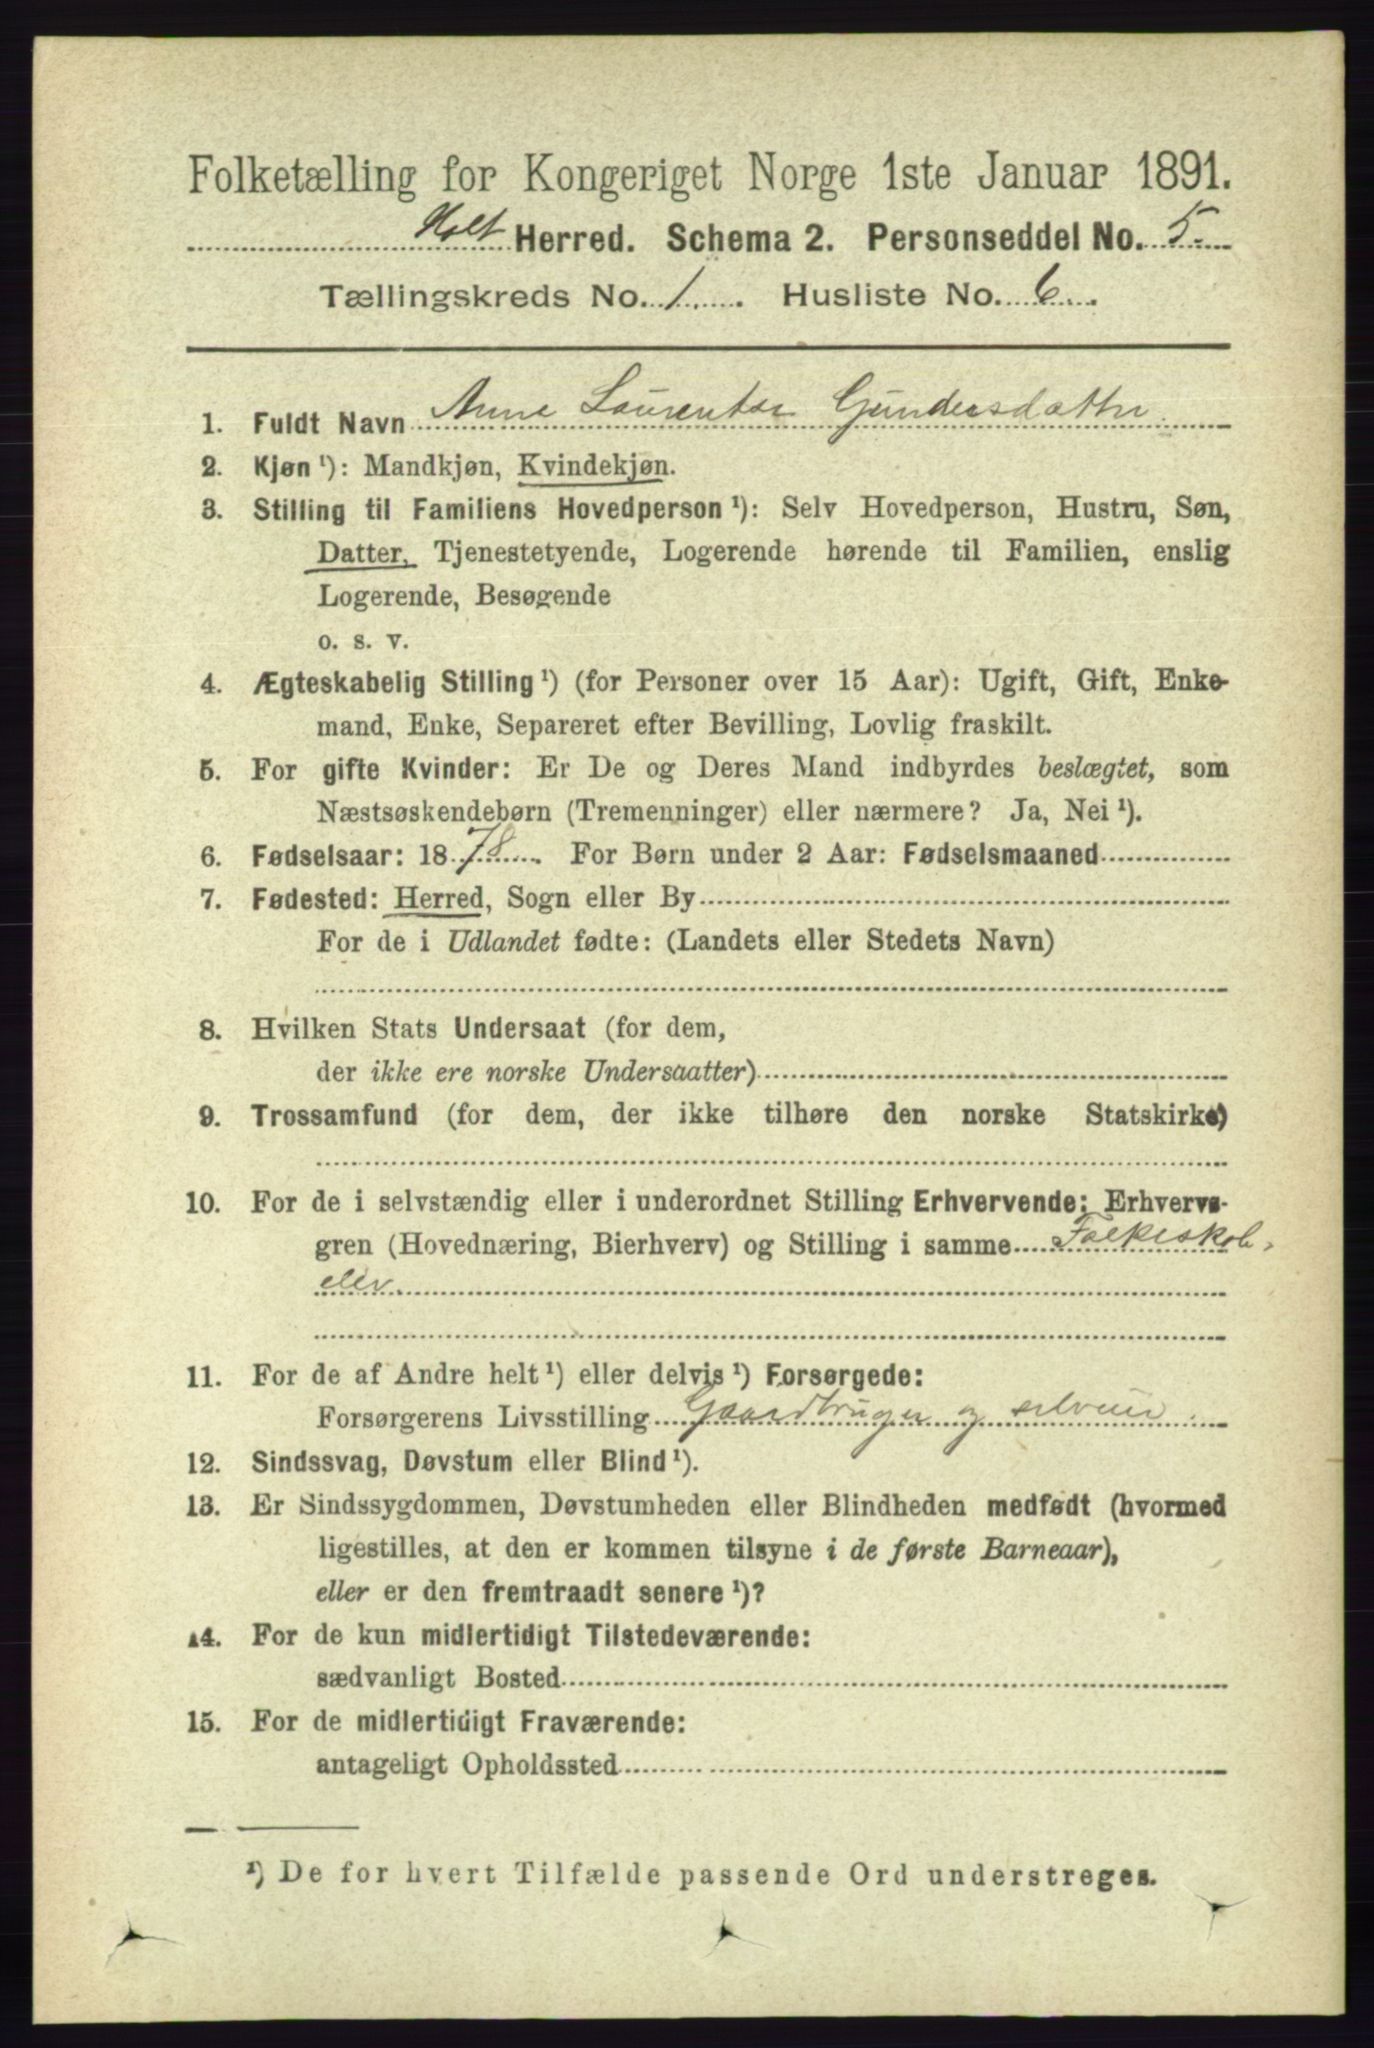 Folketælling for Kongeriget Norge 1ste Januar 1891.
Holt Herred. Schema 2. Personseddel No. 5.
Tællingskreds No. 1. Husliste No. 6.
1. Fuldt Navn Anne Laurentse Gundersdatter
2. Kjøn ¹): Mandkjøn, Kvindekjøn.
3. Stilling til Familiens Hovedperson ¹): Selv Hovedperson, Hustru, Søn,
Datter, Tjenestetyende, Logerende hørende til Familien, enslig
Logerende, Besøgende
o. s. v.
4. Ægteskabelig Stilling ¹) (for Personer over 15 Aar): Ugift, Gift, Enke-
mand, Enke, Separeret efter Bevilling, Lovlig fraskilt.
5. For gifte Kvinder: Er De og Deres Mand indbyrdes beslægtet, som
Næstsøskendebørn (Tremenninger) eller nærmere? Ja, Nei ¹).
6. Fødselsaar: 1878. For Børn under 2 Aar: Fødselsmaaned
7. Fødested: Herred, Sogn eller By
For de i Udlandet fødte: (Landets eller Stedets Navn)
8. Hvilken Stats Undersaat (for dem,
der ikke ere norske Undersaatter)
9. Trossamfund (for dem, der ikke tilhøre den norske Statskirke)
10. For de i selvstændig eller i underordnet Stilling Erhvervende: Erhvervs-
gren (Hovednæring, Bierhverv) og Stilling i samme Folkeskole-
elev
11. For de af Andre helt ¹) eller delvis ¹) Forsørgede:
Forsørgerens Livsstilling Gaardbruger og selveier
12. Sindssvag, Døvstum eller Blind ¹).
13. Er Sindssygdommen, Døvstumheden eller Blindheden medfødt (hvormed
ligestilles, at den er kommen tilsyne i de første Barneaar),
eller er den fremtraadt senere ¹)?
14. For de kun midlertidigt Tilstedeværende:
sædvanligt Bosted
15. For de midlertidigt Fraværende:
antageligt Opholdssted
¹) De for hvert Tilfælde passende Ord understreges.